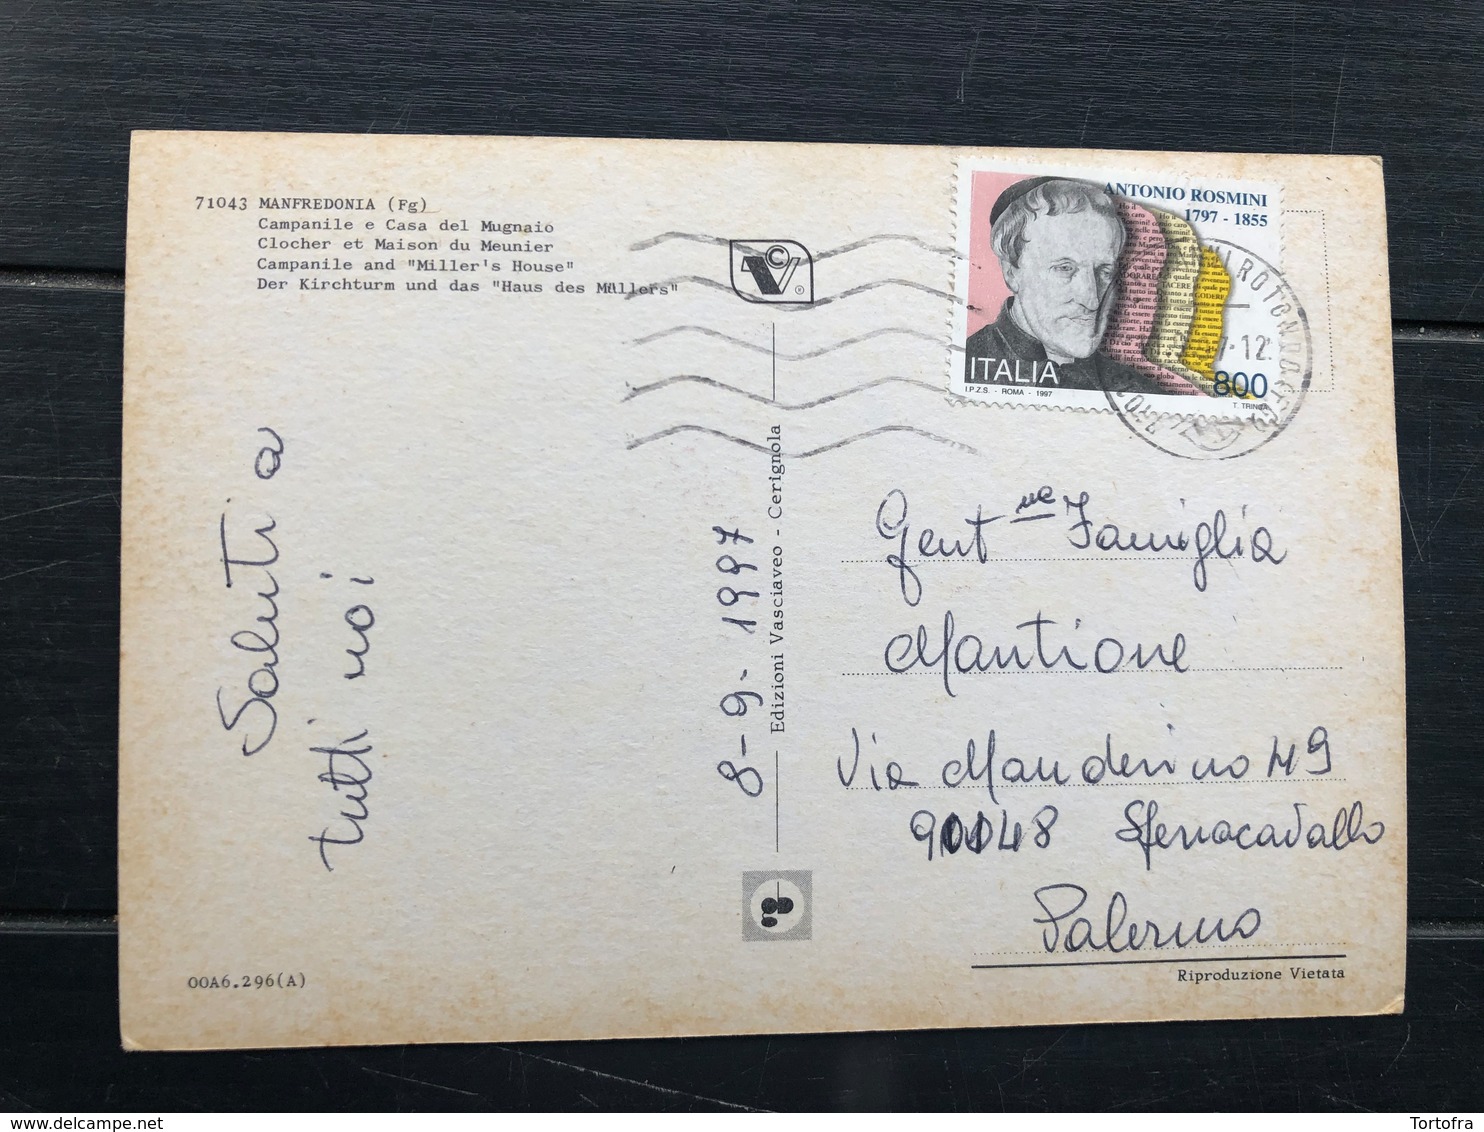 71043 MANFREDONIA (Fg)
Campanile e Casa del Mugnaio
Clocher et Maison du Meunier
Campanile and "Miller's House"
Der Kirchturm und das "Haus des Müllers"
ANTONIO ROSMINI
1797 - 1855
ITALIA
800
I.P.Z.S. - ROMA - 1997
T. TRINCA
Saluti a
tutti voi
8-9-1997
Edizioni Vasciaveo - Cerignola
Gent.ma Famiglia
Mantione
Via Manderino 49
90148 Sferracavallo
Palermo
Riproduzione Vietata
OOA6.296(A)
Tortofra